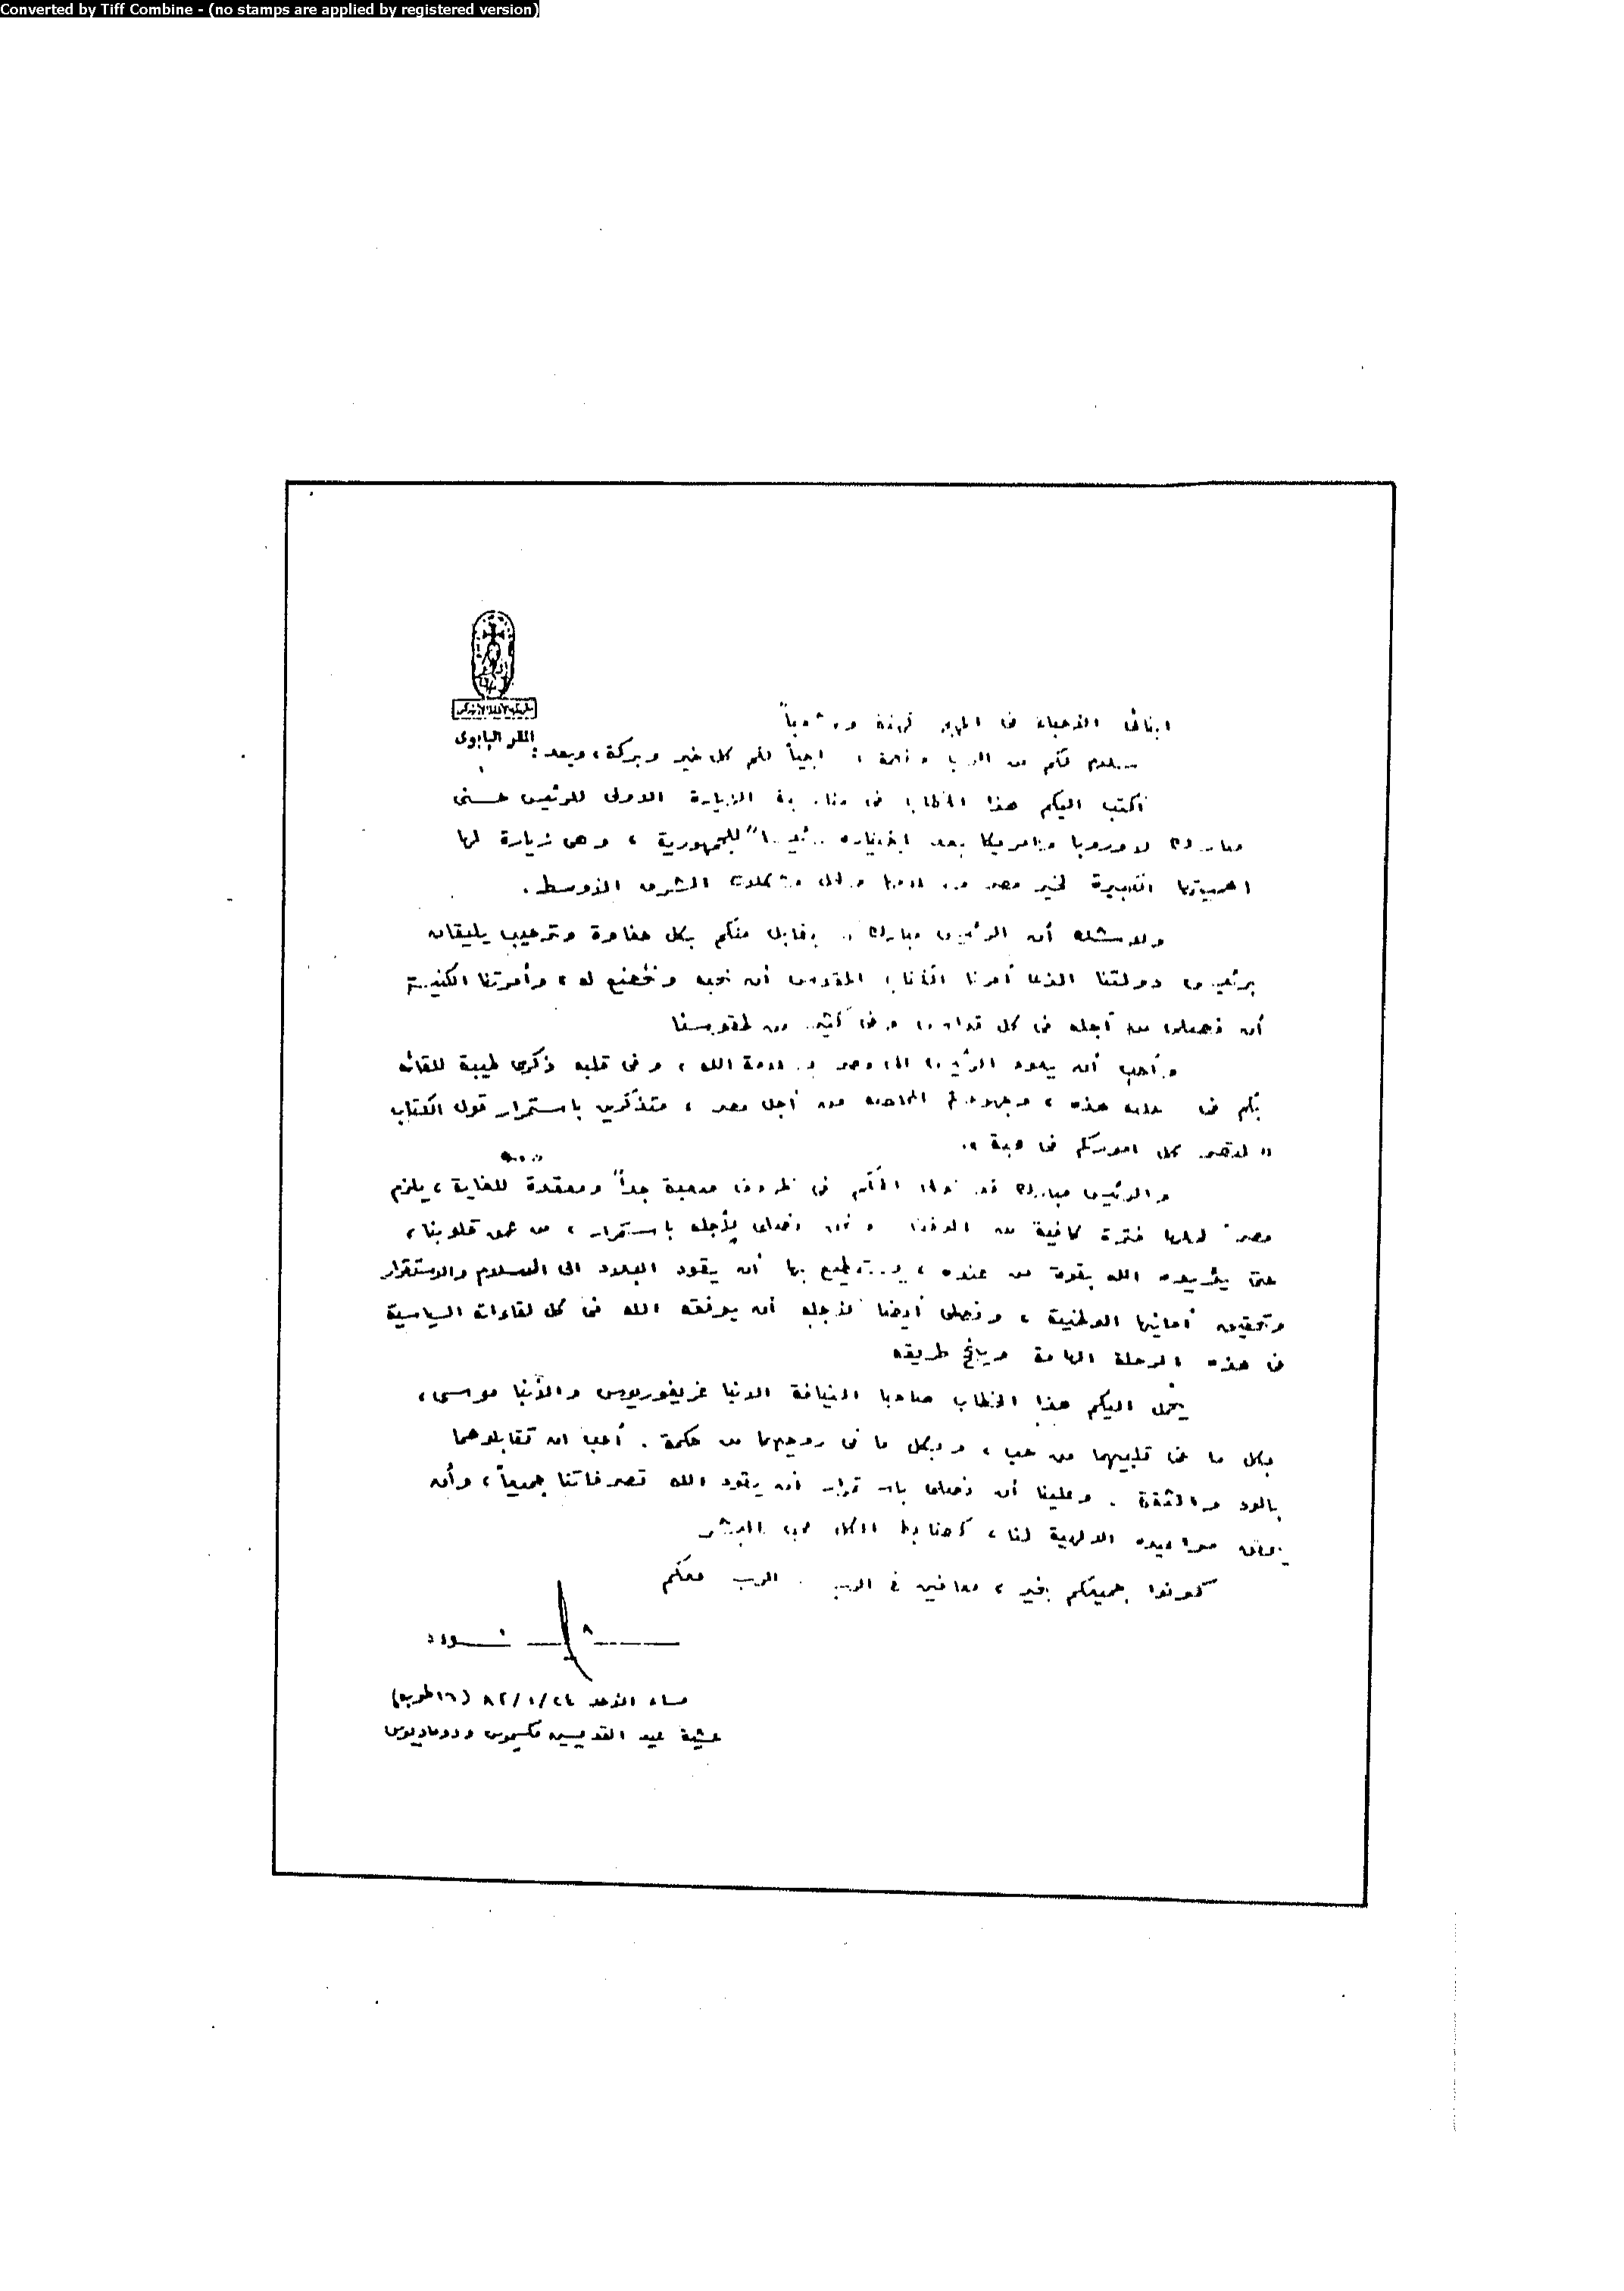 Converted by Tiff Combine - (no stamps are applied by registered version)
المقر البابوى
ابنائى الأحباء فى المهجر كهنة وشعباً
سلام لكم من الرب ونعمة، راجياً لكم كل خير وبركة، وبعد:
أكتب اليكم هذا الخطاب فى مناسبة الزيارة الاولى للرئيس حسنى
مبارك لاوروبا وامريكا بعد اختياره رئيساً للجمهورية، وهى زيارة لها
اهميتها الكبيرة لخير مصر ومشكلات الشرق الأوسط.
ولا شك أن الرئيس مبارك يقابل منكم بكل حفاوة وترحيب يليقان
برئيس دولتنا الذى أمرنا الكتاب المقدس أن نحبه ونخضع له، وأمرتنا الكنيسة
أن نصلى من أجله فى كل قداس وفى كثير من طقوسنا
وأحب أن يعود الرئيس الى مصر بسلامة الله، وفى قلبه ذكرى طيبة للقائه
بكم فى هذه، من أجل مصر، متذكرين باستمرار قول الكتاب
" لتصر كل اموركم فى محبة ".
والرئيس مبارك قد تولى الحكم فى ظروف صعبة جداً ومعقدة للغاية، يلزم
فترة كافية من الوقت ونحن نصلى لأجله باستمرار، من عمق قلوبنا،
حتى يؤيده الله بقوة من عنده، يستطيع بها أن يقود البلاد الى السلام والاستقرار
وتحقيق أمانيها الوطنية، ونصلى أيضا لأجله أن يوفقه الله فى كل لقاءات السياسية
فى هذه الرحلة الهامة طريقه
يحمل اليكم هذا الخطاب صاحبا النيافة الانبا غريغوريوس والأنبا موسى،
بكل ما فى قلبيهما من حب، وبكل ما فى روحيهما من حكمة. أحب ان تقابلوهما
بالود والثقة. وعلينا أن نصلى باستمرار أن يقود الله تصرفاتنا جميعاً، وأن
مواعيده الالهية لنا، كضابط الكل محب البشر
كونوا جميعكم بخير، معافين فى الرب. الرب معكم
شنوده
مساء الأحد ٨٢/١/٢٤ (١٦ طوبه)
عشية عيد القديسين مكسيموس ودوماديوس